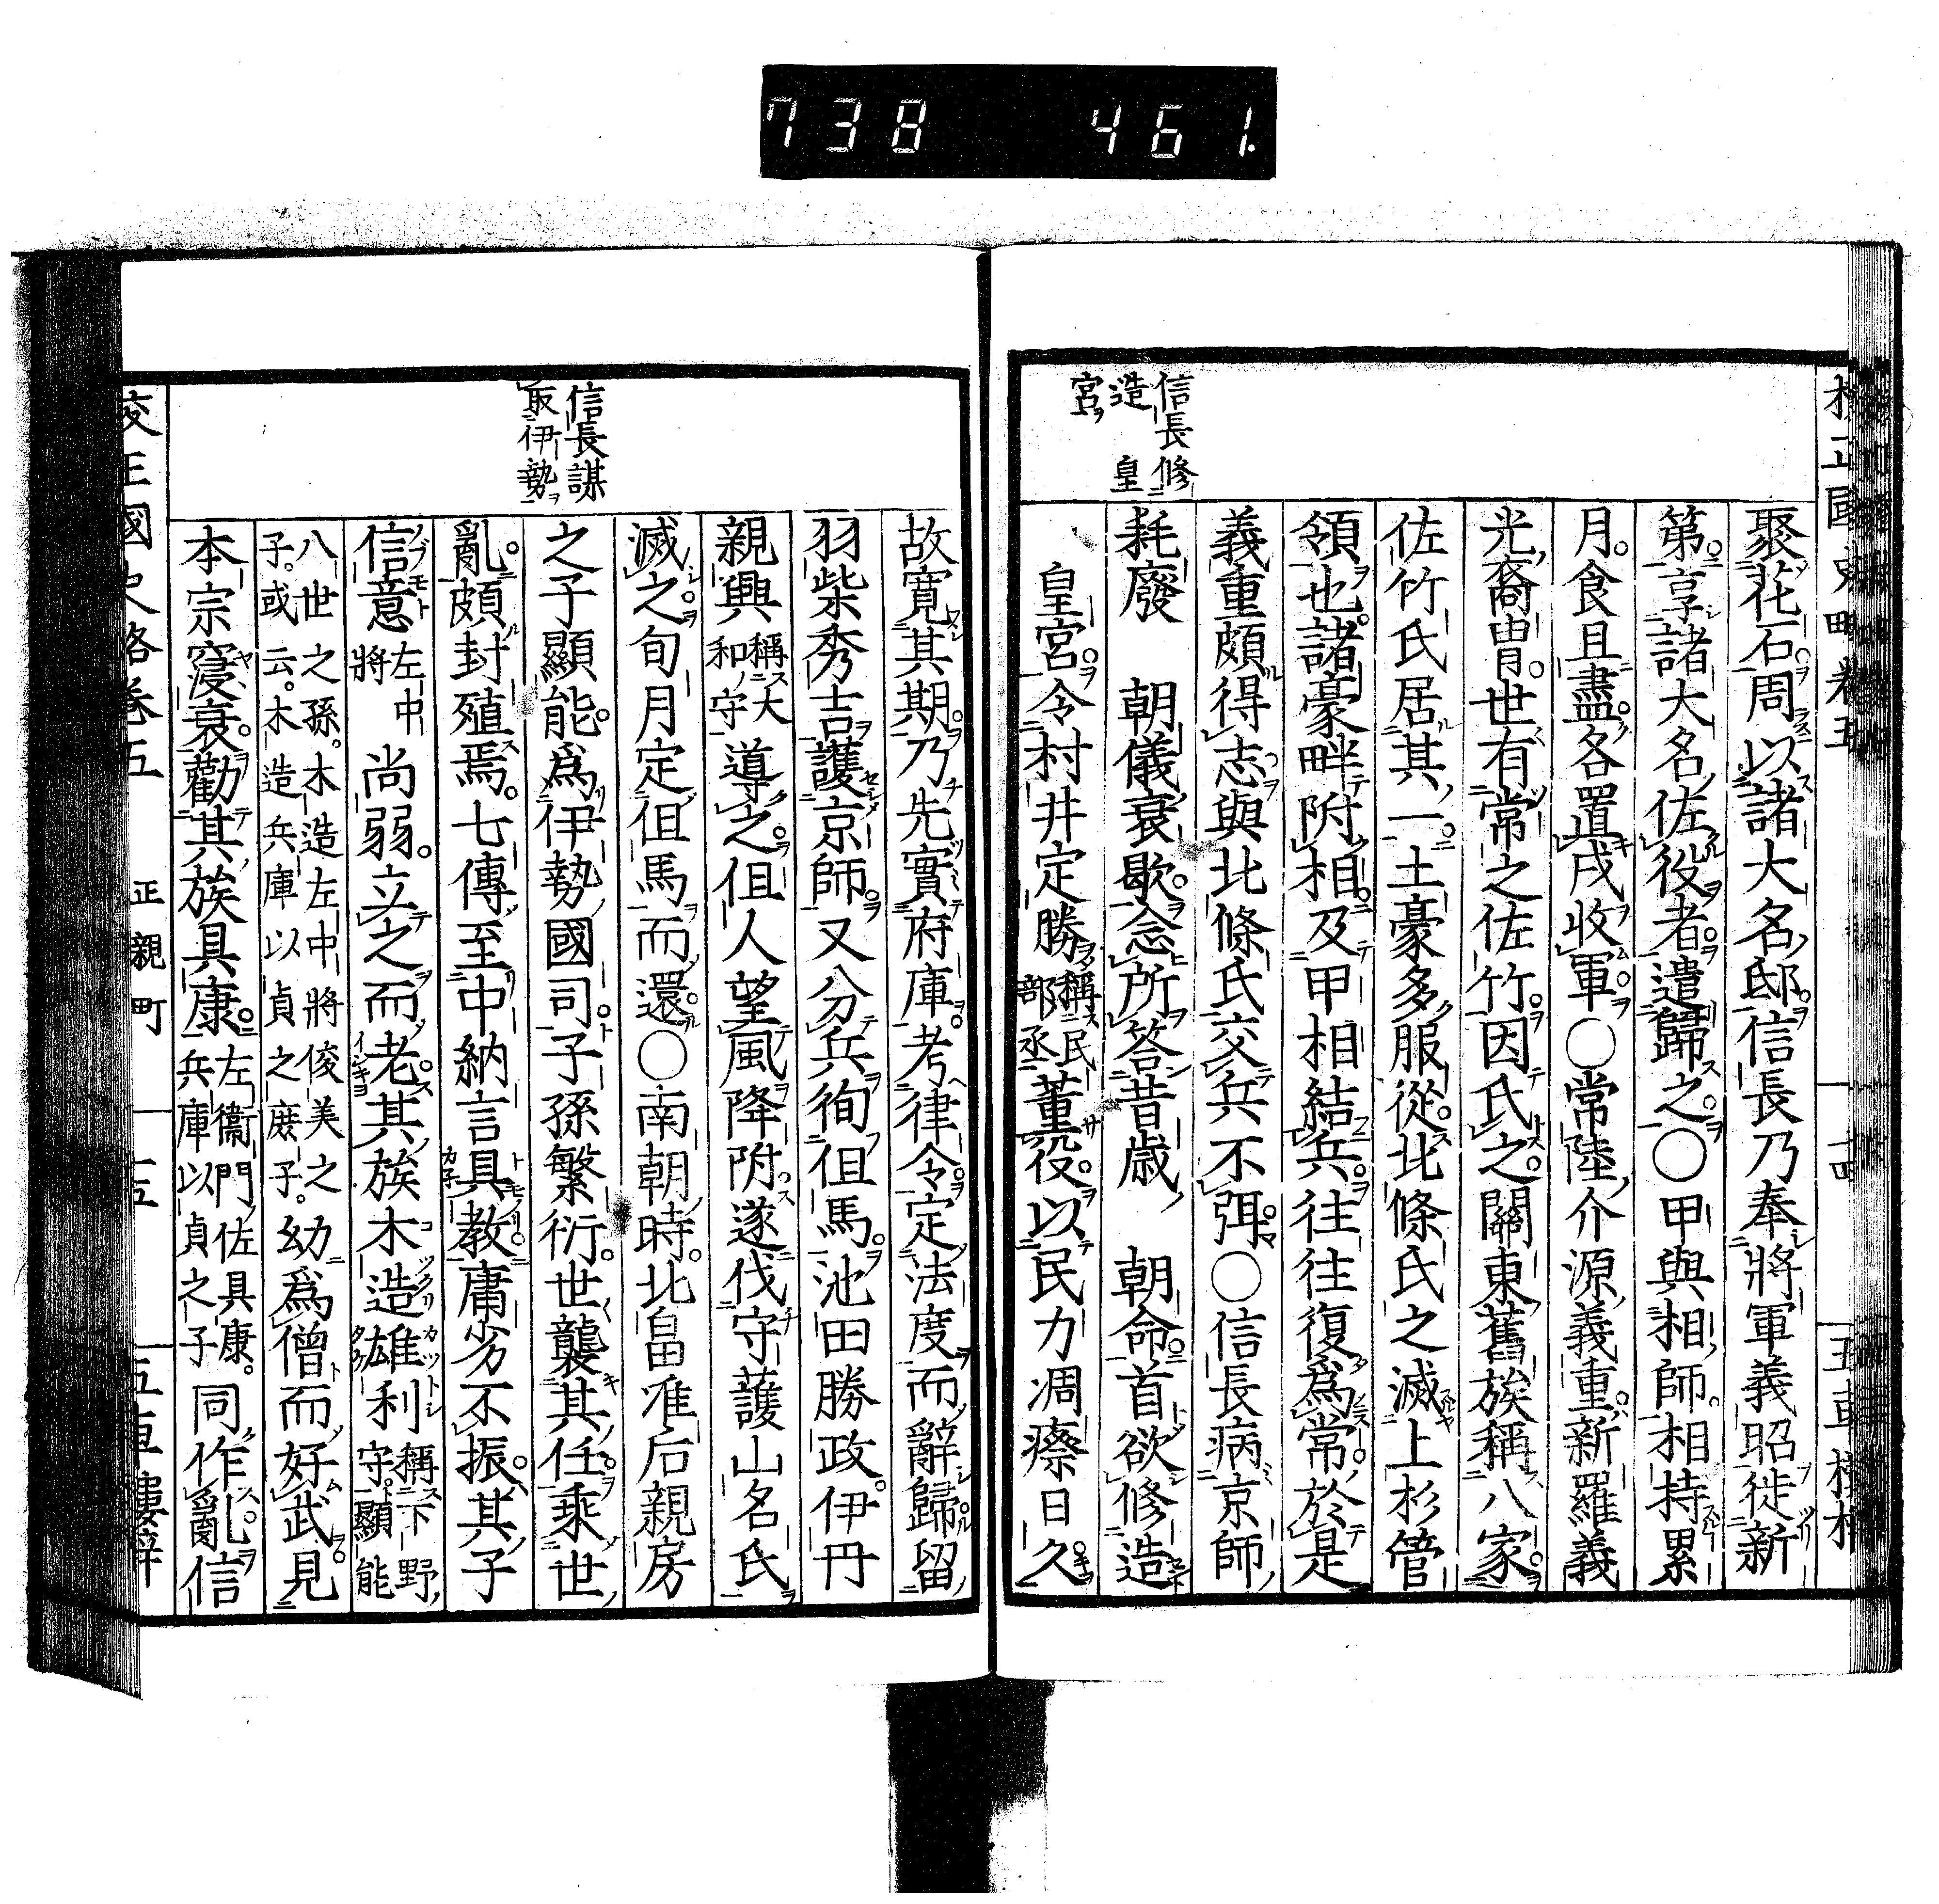 738 461.
信長修
造 皇
宮
聚花石周以諸大名邸信長乃奉將軍義昭徙新
第享諸大名佐役者遣歸之〇甲與相師相持累
月食且盡各置戍收軍〇常陸介源義重新羅義
光裔冑世有常之佐竹因氏之關東舊族稱八家
佐竹氏居其一土豪多服從北條氏之滅上杉管
領也諸豪畔附相及甲相結兵往往復爲常於是
義重頗得志與北條氏交兵不弭〇信長病京師
耗廢 朝儀衰歇念所答昔歲 朝命首欲修造
皇宮令村井定勝稱民部丞董役以民力凋瘵日久
信長謀
取伊勢
故寬其期乃先實府庫考律令定法度而辭歸留
羽柴秀吉護京師又分兵徇伹馬池田勝政伊丹
親興稱大和守導之伹人望風降附遂伐守護山名氏
滅之旬月定伹馬而還〇南朝時北畠准后親房
之子顯能爲伊勢國司子孫繁衍世襲其任乘世
亂頗封殖焉七傳至中納言具教庸劣不振其子
信意左中將尚弱立之而老其族木造雄利稱下野守顯能
八世之孫木造左中將俊美之子或云木造兵庫以貞之庶子幼爲僧而好武見
本宗寖衰勸其族具康左衞門佐具康兵庫以貞之子同作亂信
校正國史略卷五 正親町 五車樓梓